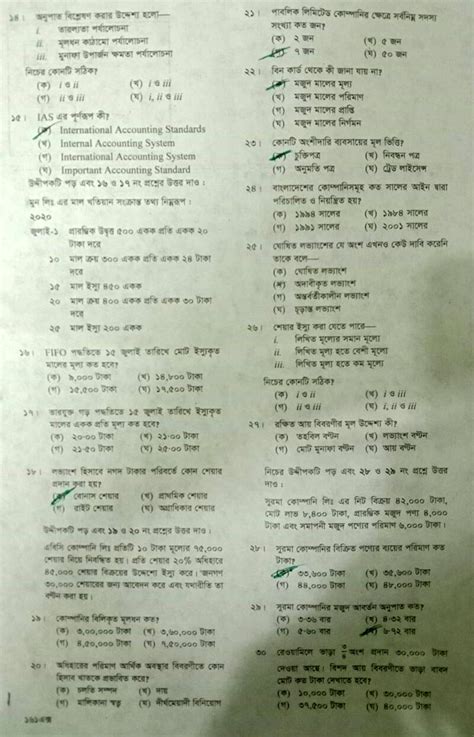 ১৪। অনুপাত বিশ্লেষণ করার উদ্দেশ্য হলো—
i. তারল্যতা পর্যালোচনা
ii. মূলধন কাঠামো পর্যালোচনা
iii. মুনাফা উপার্জন ক্ষমতা পর্যালোচনা
নিচের কোনটি সঠিক?
(ক) i ও ii (খ) i ও iii
(গ) ii ও iii (ঘ) i, ii ও iii
১৫। IAS এর পূর্ণরূপ কী?
(ক) International Accounting Standards
(খ) Internal Accounting System
(গ) International Accounting System
(ঘ) Important Accounting Standard
উদ্দীপকটি পড় এবং ১৬ ও ১৭ নং প্রশ্নের উত্তর দাও :
মুন লিঃ এর মাল খতিয়ান সংক্রান্ত তথ্য নিম্নরূপ :
২০২০
জুলাই-১ প্রারম্ভিক উদ্বৃত্ত ৫০০ একক প্রতি একক ২০
টাকা দরে
১০ মাল ক্রয় ৩০০ একক প্রতি একক ২৪ টাকা
দরে
১৫ মাল ইস্যু ৪৫০ একক
২০ মাল ক্রয় ৪০০ একক প্রতি একক ৩০ টাকা
দরে
২৫ মাল ইস্যু ২০০ একক
১৬। FIFO পদ্ধতিতে ১৫ জুলাই তারিখে মোট ইস্যুকৃত
মালের মূল্য কত হবে?
(ক) ৯,০০০ টাকা (খ) ১৪,৮০০ টাকা
(গ) ১৫,৫০০ টাকা (ঘ) ১৭,৫০০ টাকা
১৭। ভারযুক্ত গড় পদ্ধতিতে ১৫ জুলাই তারিখে ইস্যুকৃত
মালের একক প্রতি মূল্য কত হবে?
(ক) ২০·০০ টাকা (খ) ২১·০০ টাকা
(গ) ২১·৫০ টাকা (ঘ) ২৫·০০ টাকা
১৮। লভ্যাংশ হিসাবে নগদ টাকার পরিবর্তে কোন শেয়ার
প্রদান করা হয়?
(ক) বোনাস শেয়ার (খ) প্রাথমিক শেয়ার
(গ) রাইট শেয়ার (ঘ) অগ্রাধিকার শেয়ার
উদ্দীপকটি পড় এবং ১৯ ও ২০ নং প্রশ্নের উত্তর দাও :
এবিসি কোম্পানি লিঃ প্রতিটি ১০ টাকা মূল্যের ৭৫,০০০
শেয়ার নিয়ে নিবন্ধিত হয়। প্রতি শেয়ার ২০% অধিহারে
৪৫,০০০ শেয়ার বিক্রয়ের উদ্দেশ্যে ইস্যু করে। জনগণ
৩০,০০০ শেয়ারের জন্য আবেদন করে এবং যথারীতি তা
বণ্টন করা হয়।
১৯। কোম্পানির বিলিকৃত মূলধন কত?
(ক) ৩,০০,০০০ টাকা (খ) ৩,৬০,০০০ টাকা
(গ) ৪,৫০,০০০ টাকা (ঘ) ৭,৫০,০০০ টাকা
২০। অধিহারের পরিমাণ আর্থিক অবস্থার বিবরণীতে কোন
হিসাব খাতকে প্রভাবিত করে?
(ক) চলতি সম্পদ (খ) দায়
(গ) মালিকানা স্বত্ব (ঘ) দীর্ঘমেয়াদী বিনিয়োগ
২১। পাবলিক লিমিটেড কোম্পানির ক্ষেত্রে সর্বনিম্ন সদস্য
সংখ্যা কত জন?
(ক) ২ জন (খ) ৫ জন
৭ জন (ঘ) ৫০ জন
২২। বিন কার্ড থেকে কী জানা যায় না?
মজুদ মালের মূল্য
(খ) মজুদ মালের পরিমাণ
(গ) মজুদ মালের প্রাপ্তি
(ঘ) মজুদ মালের নির্গমন
২৩। কোনটি অংশীদারি ব্যবসায়ের মূল ভিত্তি?
চুক্তিপত্র (খ) নিবন্ধন পত্র
(গ) অনুমতি পত্র (ঘ) ট্রেড লাইসেন্স
২৪। বাংলাদেশের কোম্পানিসমূহ কত সালের আইন দ্বারা
পরিচালিত ও নিয়ন্ত্রিত হয়?
(ক) ১৯৯৪ সালের (খ) ১৯৮৪ সালের
(গ) ১৯৯১ সালের (ঘ) ২০০১ সালের
২৫। ঘোষিত লভ্যাংশের যে অংশ এখনও কেউ দাবি করেনি
তাকে বলে—
(ক) ঘোষিত লভ্যাংশ
অদাবীকৃত লভ্যাংশ
(গ) অন্তর্বর্তীকালীন লভ্যাংশ
(ঘ) চূড়ান্ত লভ্যাংশ
২৬। শেয়ার ইস্যু করা যেতে পারে—
i. লিখিত মূল্যের সমান মূল্যে
ii. লিখিত মূল্য হতে বেশী মূল্যে
iii. লিখিত মূল্য হতে কম মূল্যে
নিচের কোনটি সঠিক?
(ক) i ও ii (খ) i ও iii
(গ) ii ও iii (ঘ) i, ii ও iii
২৭। রক্ষিত আয় বিবরণীর মূল উদ্দেশ্য কী?
(ক) তহবিল বণ্টন (খ) লভ্যাংশ বণ্টন
(গ) মোট মুনাফা বণ্টন (ঘ) আয় বণ্টন
নিচের উদ্দীপকটি পড় এবং ২৮ ও ২৯ নং প্রশ্নের উত্তর
দাও :
সুরমা কোম্পানি লিঃ এর নিট বিক্রয় ৪২,০০০ টাকা,
মোট লাভ ৮,৪০০ টাকা, প্রারম্ভিক মজুদ পণ্য ৪,০০০
টাকা এবং সমাপনী মজুদ পণ্যের পরিমাণ ৬,০০০ টাকা।
২৮। সুরমা কোম্পানির বিক্রিত পণ্যের ব্যয়ের পরিমাণ কত
টাকা?
৩৩,৬০০ টাকা (খ) ৩৫,৬০০ টাকা
(গ) ৪৪,০০০ টাকা (ঘ) ৪৮,০০০ টাকা
২৯। সুরমা কোম্পানির মজুদ আবর্তন অনুপাত কত?
(ক) ৩·৩৬ বার (খ) ৪·৩২ বার
(গ) ৫·৬০ বার ৬·৭২ বার
৩০ রেওয়ামিলে ভাড়া অংশ প্রদান ৩০,০০০ টাকা
দেওয়া আছে। বিশদ আয় বিবরণীতে ভাড়া বাবদ
মোট কত টাকা দেখাতে হবে?
(ক) ১০,০০০ টাকা (খ) ৩০,০০০ টাকা
(গ) ৩৭,৫০০ টাকা (ঘ) ৪০,০০০ টাকা
১৬১এক্স